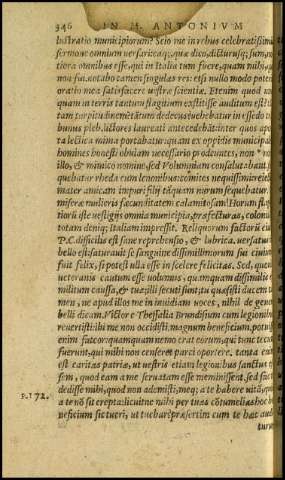 346 IN M. ANTONIVM
lustratio municipiorum? Scio me in rebus celebratissimis
sermone omnium versari: eaq;, quæ dico, dicturusq; sum, no
tiora omnibus esse, qui in Italia tum fuere, quam mihi, qui
non fui. notabo tamen singulas res: etsi nullo modo poterit
oratio mea satisfacere uestræ scientiæ. Etenim quod un
quam in terris tantum flagitium extitisse auditum est?
tam turpitudinem? tantum dedecus? uehebatur in essedo tri
bunus pleb. lictores laureati antecedebāt: inter quos aper
ta lectica mima portabatur: quam ex oppidis municipales
homines honesti obuiam necessario prodeuntes, non
illo, & mimico nomine, sed Volumniam consalutabant.
quebatur rheda cum lenonibus: comites nequissimi: reiecta
mater amicam impuri filij tāquam nurum sequebatur.
miseræ mulieris fæcunditatem calamitosam! Horum flagi
tiorū iste uestigijs omnia municipia, præfecturas, colonias
totam deniq; Italiam impressit. Reliquorum factorū eius
P.C. difficilis est sane reprehensio, & lubrica. uersatus
bello est: saturauit se sanguine dissimillimorum sui ciuium
fuit felix, si potest ulla esse in scelere felicitas. Sed, quoniam
ueteranis cautum esse uolumus, quamquam dissimilis
militum caussa, & tua: illi secuti sunt; tu quæsisti ducem
men, ne apud illos me in inuidiam uoces, nihil de genere
belli dicam. Victor e Thessalia Brundisium cum legionibus
reuertisti: ibi me non occidisti. magnum beneficium. potuisse
enim fateor. quamquam nemo erat eorum, qui tunc tecum
fuerunt, qui mihi non censeret parci oportere. tanta enim
est caritas patriæ, ut uestris etiam legionibus sanctus
sem, quod eam a me seruatam esse meminissent. sed fac
dedisse mihi, quod non ademisti; meq; a te habere uitā, quia
p. 172. a te nō sit erepta: licuitne mihi per tuas cōtumelias hoc be
neficium sic tueri, ut tuebar? præsertim cum te hæc audi
turum